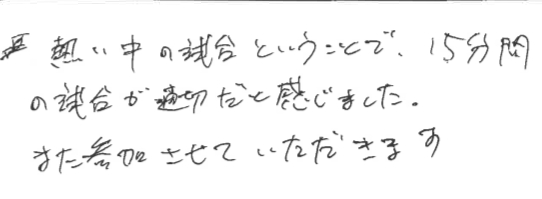 熱い中の試合ということで、15分間
の試合が適切だと感じました。
また参加させていただきます